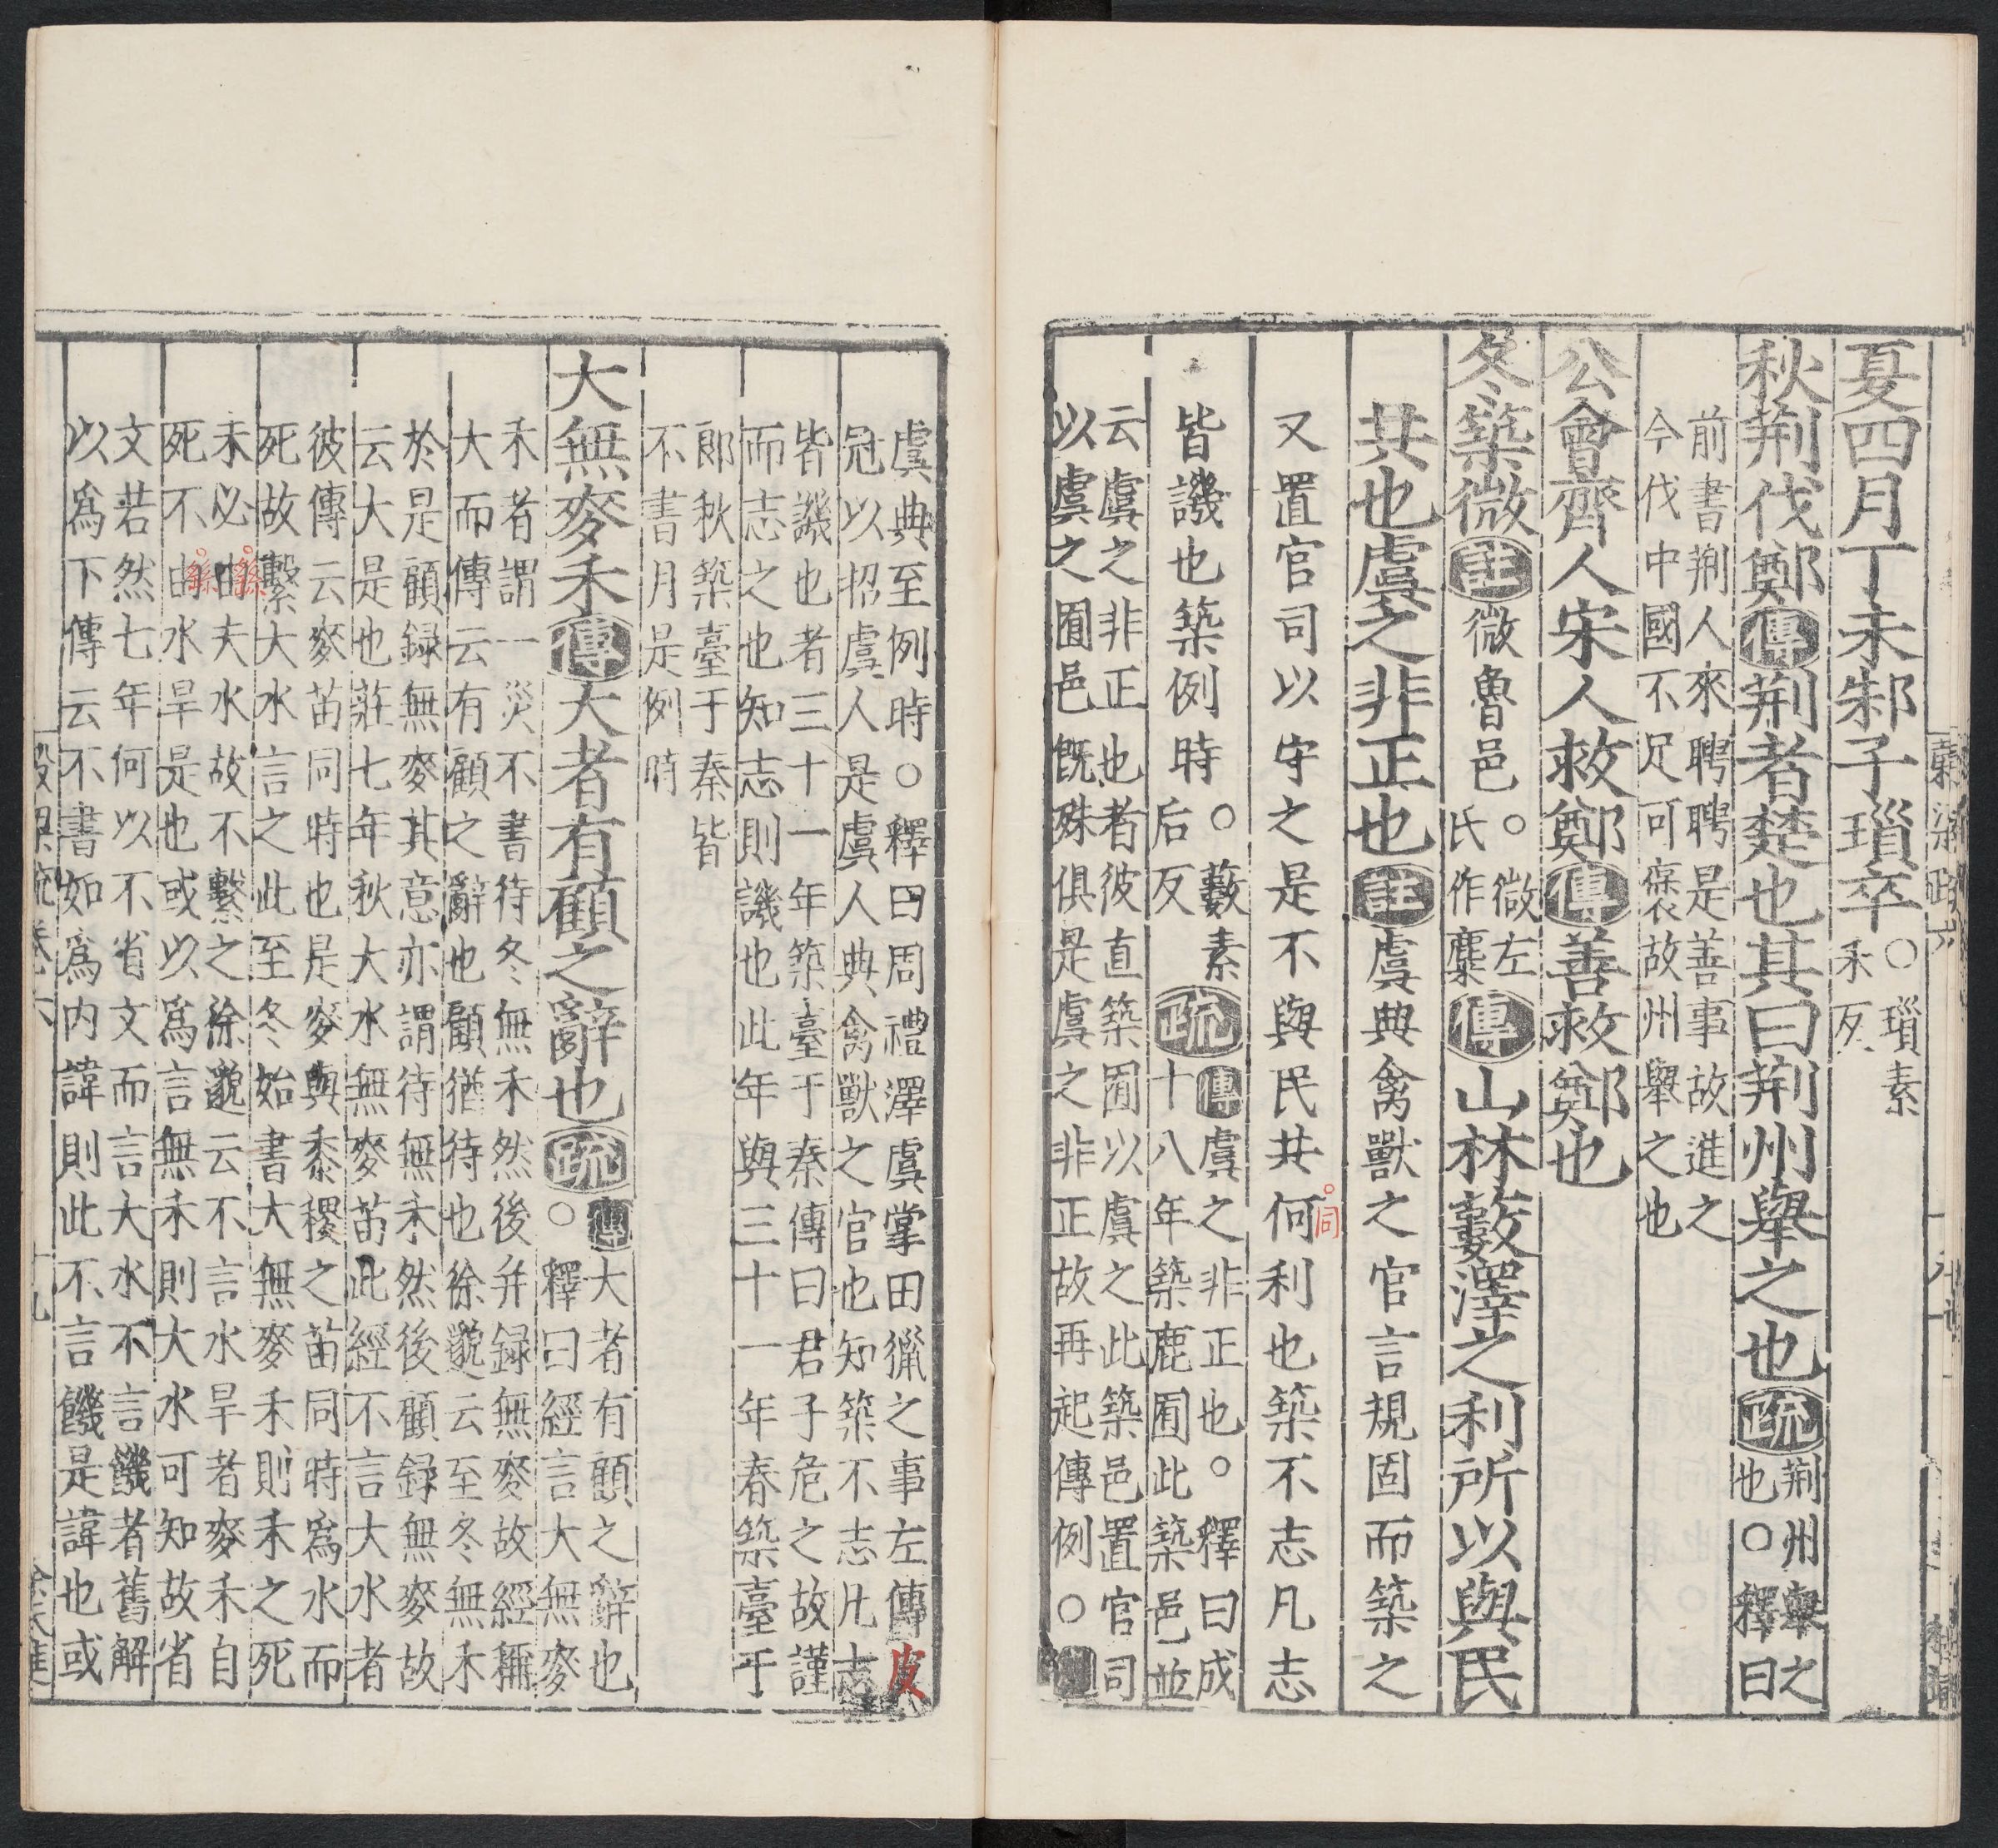 夏四月丁未邾子瑣卒○瑣素禾反
秋荆伐鄭傳荆者楚也其曰荆州舉之也疏荆州舉之也○釋曰
前書荆人來聘聘是善事故進之今伐中國不足可襃故州舉之也
公會齊人宋人救鄭傳善救鄭也
冬築微註微魯邑○微左氏作麋傳山林藪澤之利所以與民
共也虞之非正也註虞典禽獸之官言規固而築之
又置官司以守之是不與民共何利也築不志凡志
同
皆譏也築例時○藪素后反疏傳虞之非正也○釋曰成十八年築鹿囿此築邑並
云虞之非正也者彼直築囿以虞之此築邑置官司以虞之囿邑既殊俱是虞之非正故再起傳例○註
虞典至例時○釋曰周禮澤虞掌田獵之事左傳皮冠以招虞人是虞人典禽獸之官也知築不志凡志
皆譏也者三十一年築臺于秦傳曰君子危之故謹而志之也知志則譏也此年與三十一年春築臺于
郎秋築臺于秦皆不書月是例時
大無麥禾傳大者有顧之辭也疏傳大者有顧之辭也○釋曰經言大無麥
禾者謂一災不書待冬無禾然後并録無麥故經稱大而傳云有顧之辭也顧猶待也徐邈云至冬無禾
於是顧録無麥其意亦謂待無禾然後顧録無麥故云大是也莊七年秋大水無麥苗此經不言大水者
彼傳云麥苗同時也是麥與黍稷之苗同時爲水而死故繫大水言之此至冬始書大無麥禾則禾之死
未必由夫水故不繫之徐邈云不言水旱者麥禾自死不由水旱是也或以爲言無禾則大水可知故省
繇
繇
文若然七年何以不省文而言大水不言饑者舊解以爲下傳云不書如爲内諱則此不言饑是諱也或